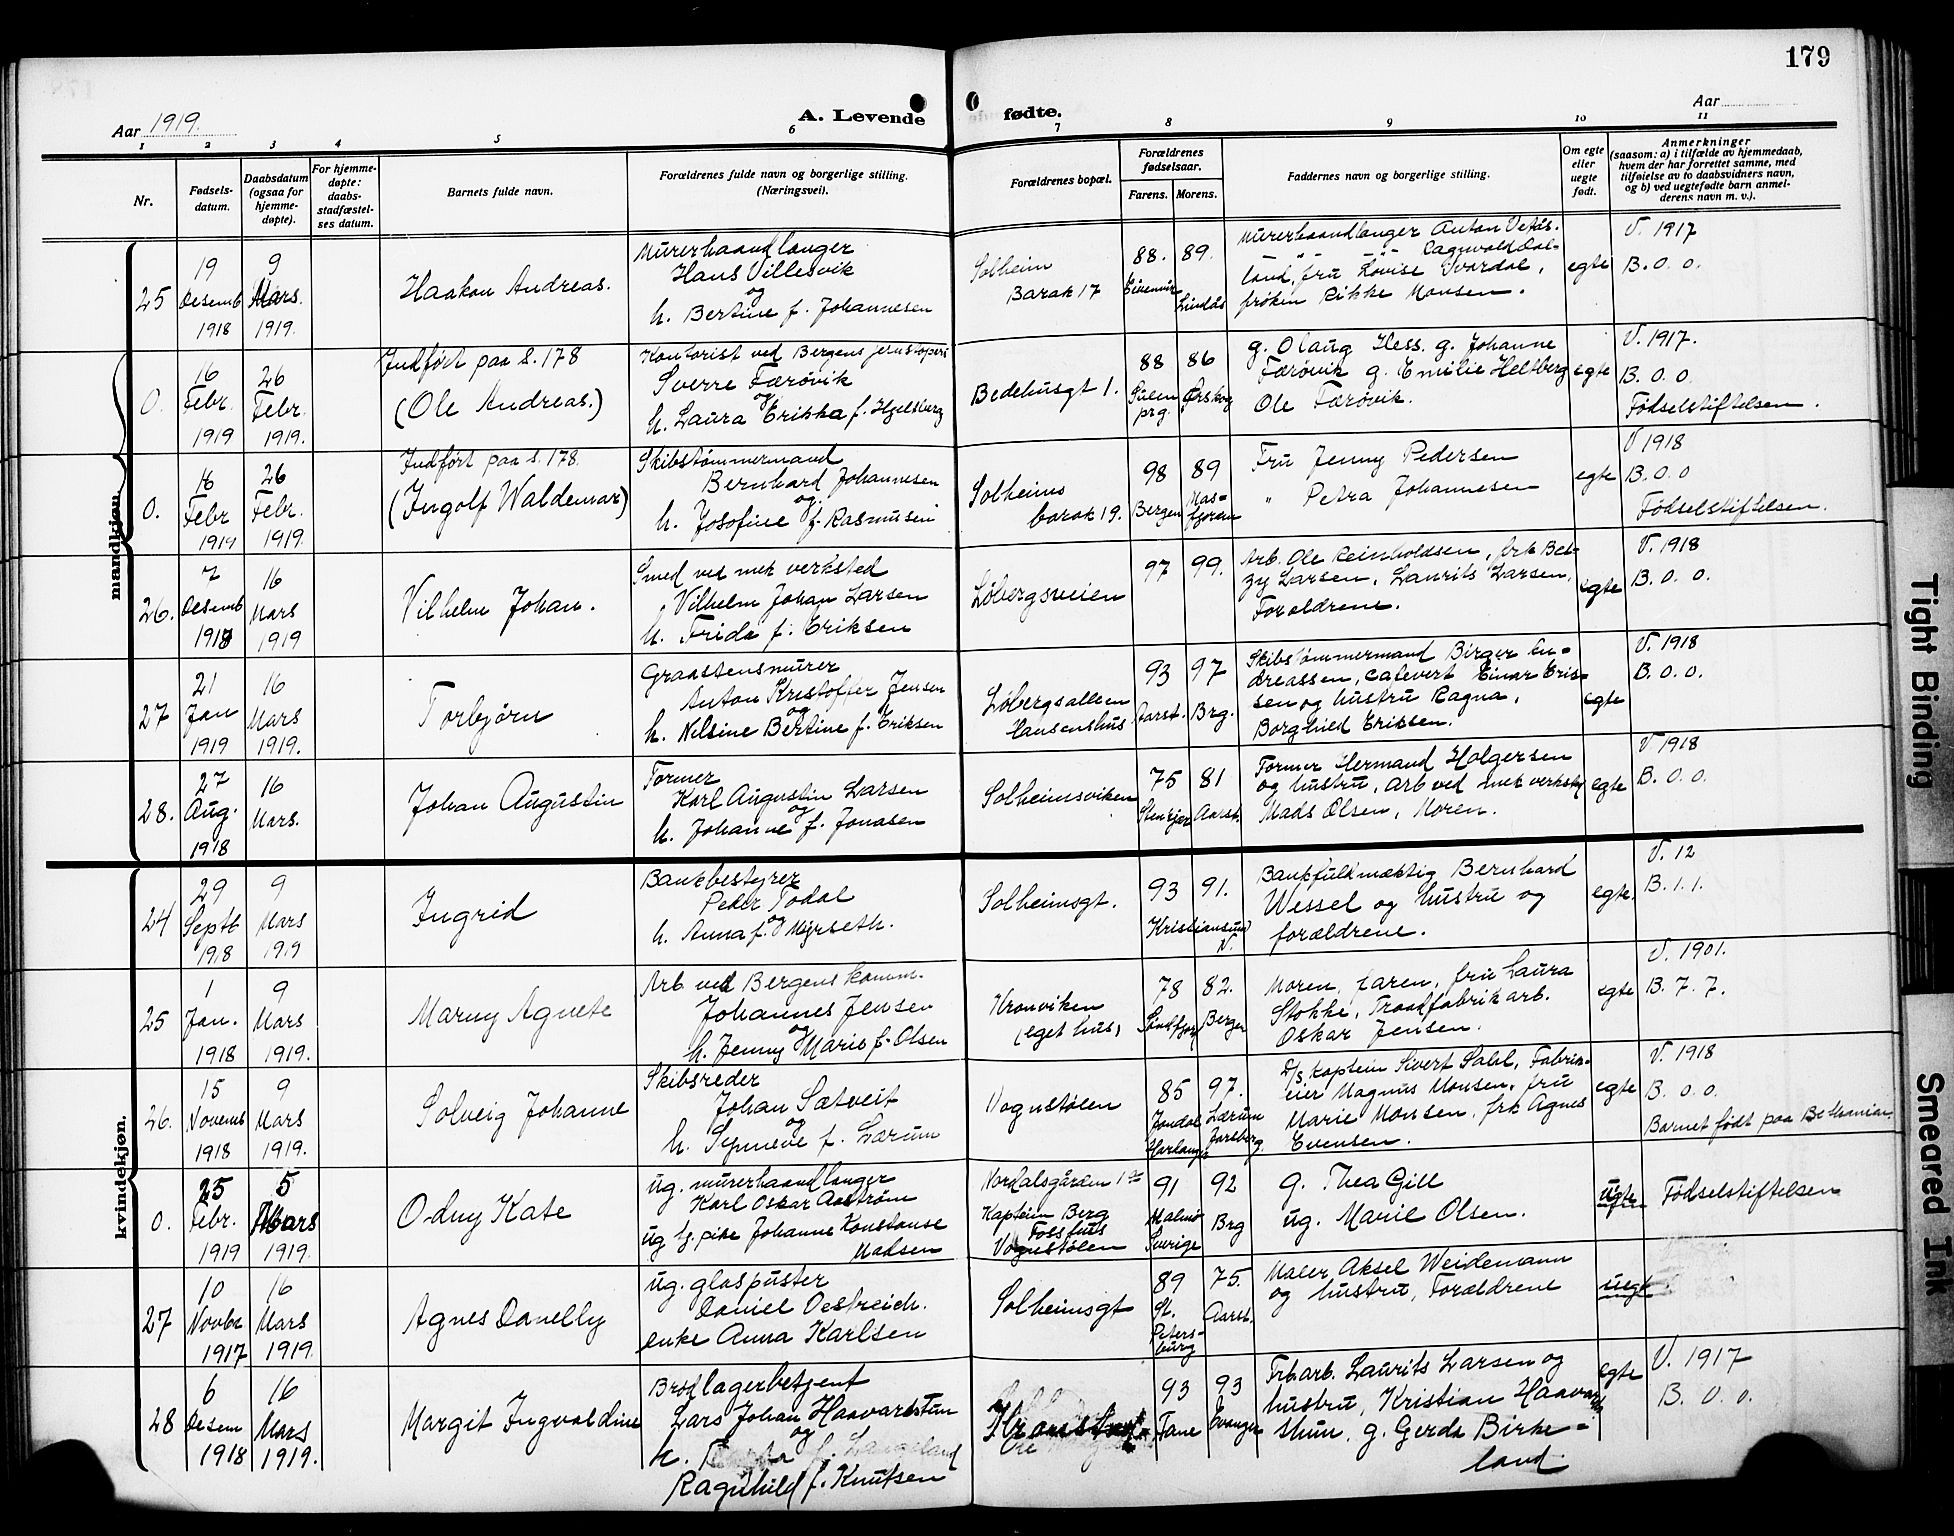 179
Aar 1919.
A. Levende fødte.
Aar
1 2 3 4 5 6 7 8 9 10 11
Nr.
Fødsels-
datum.
Daabsdatum
(ogsaa for
hjemme-
døpte).
For hjemme-
døpte:
daabs-
stadfæstel-
ses datum.
Barnets fulde navn.
Forældrenes fulde navn og borgerlige stilling.
(Næringsvei).
Forældrenes bopæl.
Forældrenes
fødselsaar.
Farens. Morens.
Faddernes navn og borgerlige stilling.
Om egte
eller
uegte
født.
Anmerkninger
(saasom: a) i tilfælde av hjemmedaab,
hvem der har forrettet samme, med
tilføielse av to daabsvidners navn,
og b) ved uegtefødte barn anmel-
derens navn m. v.).
mandkjøn.
25
19
Desemb
1918
9
Mars.
1919.
Haakon Andreas.
Murerhaandlanger
Hans Villesvik
og
h. Bertine f. Johannesen
Solheim
Barak 17
88. 89.
Eivenvik
Lindås
Murerhaandlanger Anton
land, fru Lovise
frøken Rikke Monsen.
egte
V. 1917
B. 0. 0.
0.
16
Febr.
1919
26
Febr.
1919.
Indført paa s. 178
(Ole Andreas.)
Kontorist ved Bergens jernstøperi
Sverre Færøvik
og
h. Laura Erikka f. Hjelsberg
Bedehusgt 1.
88 86
Sulen Ørskog
prg.
g. Olaug Hess. g. Johanne
Færøvik g. Emilie Heltberg
Ole Færøvik.
egte
V. 1917.
B. 0. 0
Fødselstiftelsen.
0.
16
Febr
1919
26
Febr.
1919.
Indført paa s. 178.
(Ingolf Waldemar)
Skibstømmermand
Bernhard Johannesen
og
h. Josofine f. Rasmusen
Solheims
barak 19.
98 89
Bergen Mas=
fjorden
Fru Jenny Pedersen
" Petra Johannesen
egte
V 1918
B. 0. 0
Fødselstiftelsen.
26.
7
Desemb
1918
16
Mars
1919
Vilhelm Johan.
Smed ved mek verksted
Vilhelm Johan Larsen
h. Frida f. Eriksen
Løbergsveien
97 99.
Arb. Ole Reinholdsen, frk Bet-
zy Larsen, Laurits Larsen,
Forældrene.
egte
V. 1918
B. 0. 0.
27
21
Jan
1919
16
Mars
1919.
Torbjørn
Graastensmurer
Anton Kristoffer Jensen
og
h. Nilsine Bertine f. Eriksen
Løbergsalleen
Hansenshus
93 97
Aarst. Brg.
Skibstømmermand Birger An=
dreassen, Cafevert Einar Erik=
sen og hustru Ragna,
Borghild Eriksen.
egte
V. 1918
B. 0. 0.
28.
27
Aug.
1918
16
Mars.
Johan Augustin
Former
Karl Augustin Larsen
og
h. Johanne f. Jonasen
Solheimsviken
75 81
Stenkjær Aarst.
Former Hermand Holgersen
og hustru, Arb ved mek verksted
Mads Olsen, Moren.
egte
V 1918
B. 0. 0.
kvindekjøn.
24
29
Septb
1918
9
Mars
1919
Ingrid
Bankbestyrer
Peder Todal
og
h. Anna f. Myrseth.
Solheimsgt.
93 91.
Kristiansund
N.
Bankfuldmæktig Bernhard
Wessel og hustru og
forældrene.
egte.
V. 12
B. 1. 1.
25
1
Jan.
1918
9
Mars
1919.
Marny Agnete
Arb ved Bergens komm.
Johannes Jensen
og
h. Jenny Marie f. Olsen
Kronviken
(eget hus)
78 82.
Søndfjord Bergen
Moren, faren, fru Laura
Stokke, Traadfabrikarb.
Oskar Jensen.
egte
V. 1901.
B. 7. 7.
26.
15
Novemb
1918
9
Mars
1919.
Solveig Johanne
Skibsreder
Johan Sætveit
og
h. Synneve f. Lærum
Vognstølen
85 97.
Jondal Lærum
Hardanger Jarlsberg.
D/s kaptein Sivert Sahl, Fabrik=
eier Magnus Monsen, fru
Marie Monsen, frk Agnes
Evensen.
egte
V. 1918
B. 0. 0.
Barnet født paa Bethanien
0.
25
Febr.
1919
5
Mars
1919.
Odny Kate
ug. murerhaandlanger
Karl Oskar Aastrøm
ug tj. pike Johanne Konstanse
Madsen
Nordalsgården 1ste
Kaptein Berg
Fosshus
Vognstølen
91 92
Malmö Brg
Sverige
g. Thea Gill
ug. Marie Olsen.
ugte
Fødselstiftelsen
27
10
Novbr
1917
16
Mars
1919.
Agnes Danelly
ug. glaspuster
Daniel Oestreich.
enke Anna Karlsen
Solheimsgt
89 75.
St. Aarst.
Peters-
burg
Maler Aksel Weidemann
og hustru, Forældrene
uegt
28
6
Desem
1918
16
Mars
1919.
Margit Ingvaldine
Brødlagerbetjent
Lars Johan Haavardstun
og
h. f. Langeland
Ragnhild f. Knutsen
93 93
Fane Evanger
Frb.arb. Laurits Larsen og
hustru, Kristian Haavard
stun, g. Gerda Birke=
land
egte
V. 1917
B. 0. 0.
Tight Binding
Smeared Ink